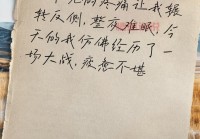 的疼痛让我辗
转反侧，整夜难眠，今
天的我仿佛经历了一
场大战，疲惫不堪